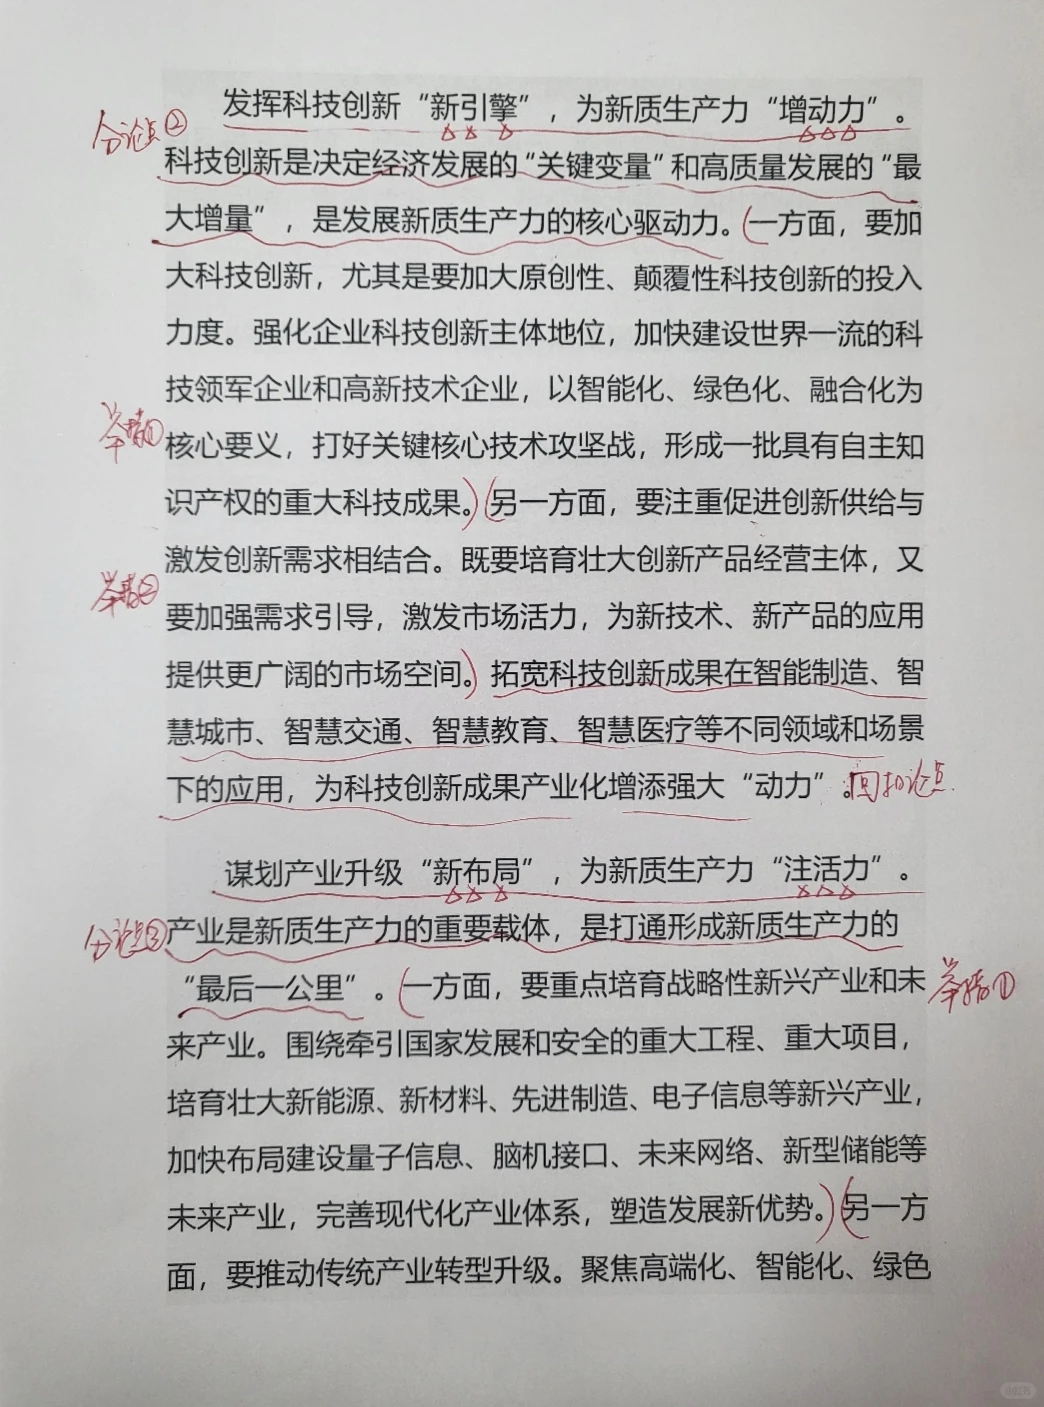 发挥科技创新“新引擎”，为新质生产力“增动力”。
分论点②
科技创新是决定经济发展的“关键变量”和高质量发展的“最
大增量”，是发展新质生产力的核心驱动力。（一方面，要加
大科技创新，尤其是要加大原创性、颠覆性科技创新的投入
力度。强化企业科技创新主体地位，加快建设世界一流的科
技领军企业和高新技术企业，以智能化、绿色化、融合化为
举措①
核心要义，打好关键核心技术攻坚战，形成一批具有自主知
识产权的重大科技成果。）（另一方面，要注重促进创新供给与
激发创新需求相结合。既要培育壮大创新产品经营主体，又
举措②
要加强需求引导，激发市场活力，为新技术、新产品的应用
提供更广阔的市场空间。）拓宽科技创新成果在智能制造、智
慧城市、智慧交通、智慧教育、智慧医疗等不同领域和场景
下的应用，为科技创新成果产业化增添强大“动力”。回扣论点
谋划产业升级“新布局”，为新质生产力“注活力”。
分论点③
产业是新质生产力的重要载体，是打通形成新质生产力的
“最后一公里”。（一方面，要重点培育战略性新兴产业和未
举措①
来产业。围绕牵引国家发展和安全的重大工程、重大项目，
培育壮大新能源、新材料、先进制造、电子信息等新兴产业，
加快布局建设量子信息、脑机接口、未来网络、新型储能等
未来产业，完善现代化产业体系，塑造发展新优势。）（另一方
面，要推动传统产业转型升级。聚焦高端化、智能化、绿色
小红书